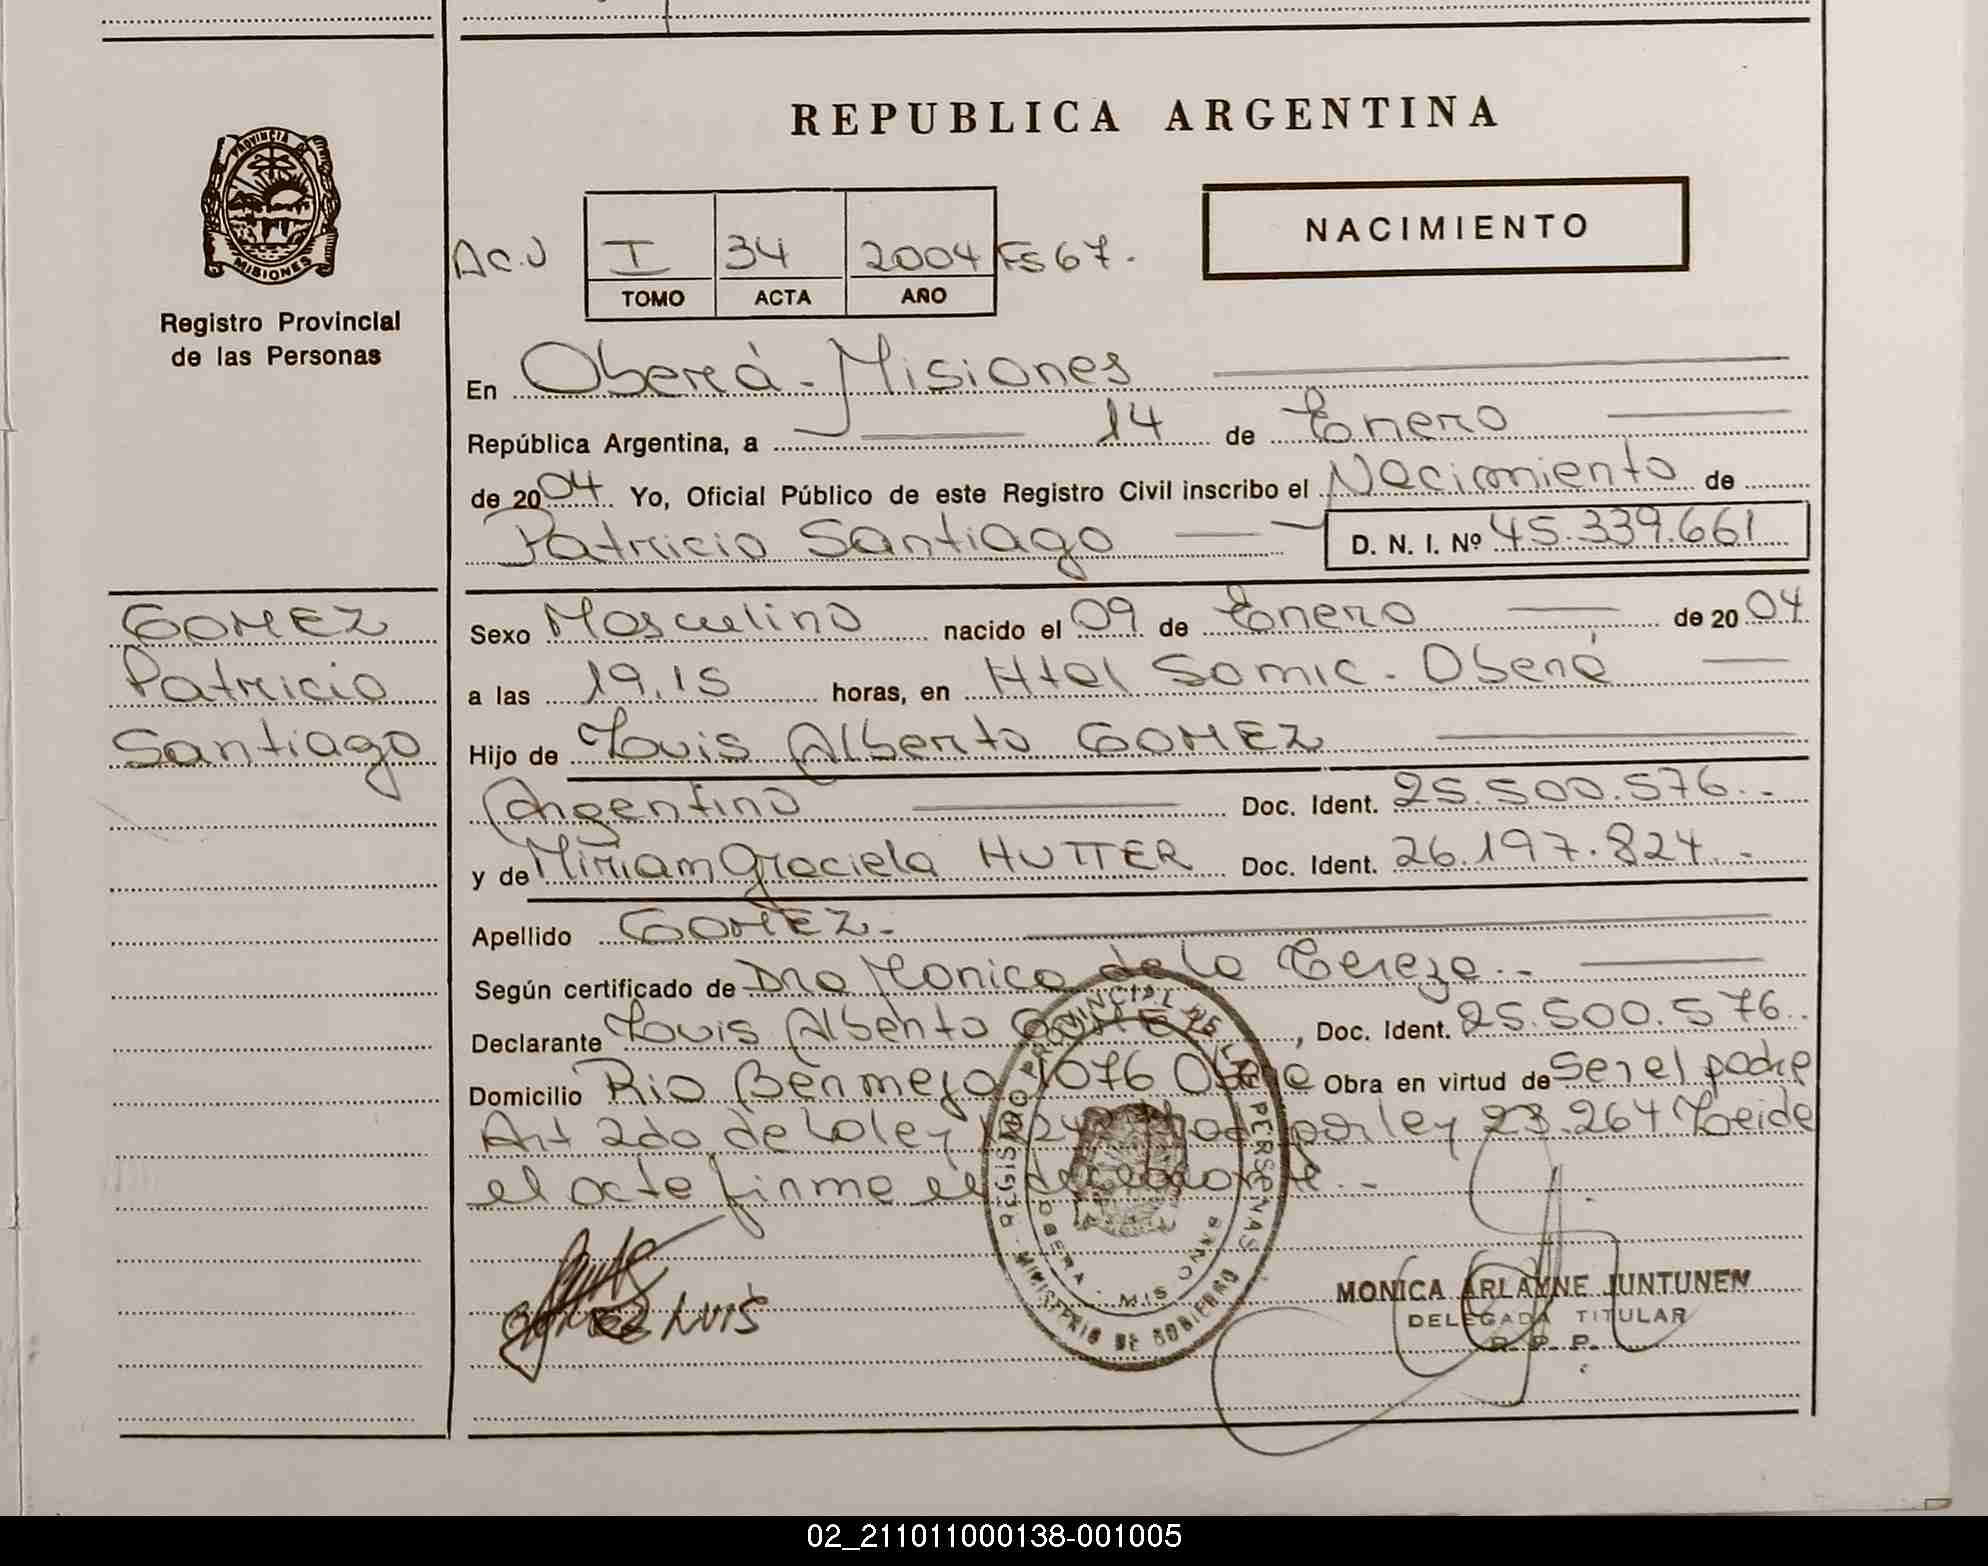 REPUBLICA ARGENTINA
PROVINCIA DE MISIONES
Registro Provincial
de las Personas
NACIMIENTO
Ac.U I 34 2004 Fs 67.
TOMO ACTA AÑO
En Oberá - Misiones
República Argentina, a 14 de Enero
de 2004 Yo, Oficial Público de este Registro Civil inscribo el Nacimiento de
Patricio Santiago D. N. I. Nº 45.339.661
GOMEZ
Patricio
Santiago
Sexo Masculino nacido el 09 de Enero de 2004
a las 19.15 horas, en Htal Samic - Oberá
Hijo de Luis Alberto GOMEZ
Argentino Doc. Ident. 25.500.576.-
y de Miriam Graciela HUTTER Doc. Ident. 26.197.824.-
Apellido GOMEZ.-
Según certificado de Dra Monica de la Cereza.-
Declarante Luis Alberto GOMEZ, Doc. Ident. 25.500.576.
Domicilio Rio Bermejo 1076 Oberá Obra en virtud de Ser el padre
Art 2do de la ley por ley 23.264 Leida
el acta firma el declarante.-
REGISTRO PROVINCIAL DE LAS PERSONAS
MINISTERIO DE GOBIERNO
OBERA - MISIONES
GOMEZ LUIS
MONICA ARLAYNE JUNTUNEN
DELEGADA TITULAR
R. P. P.
02_211011000138-001005